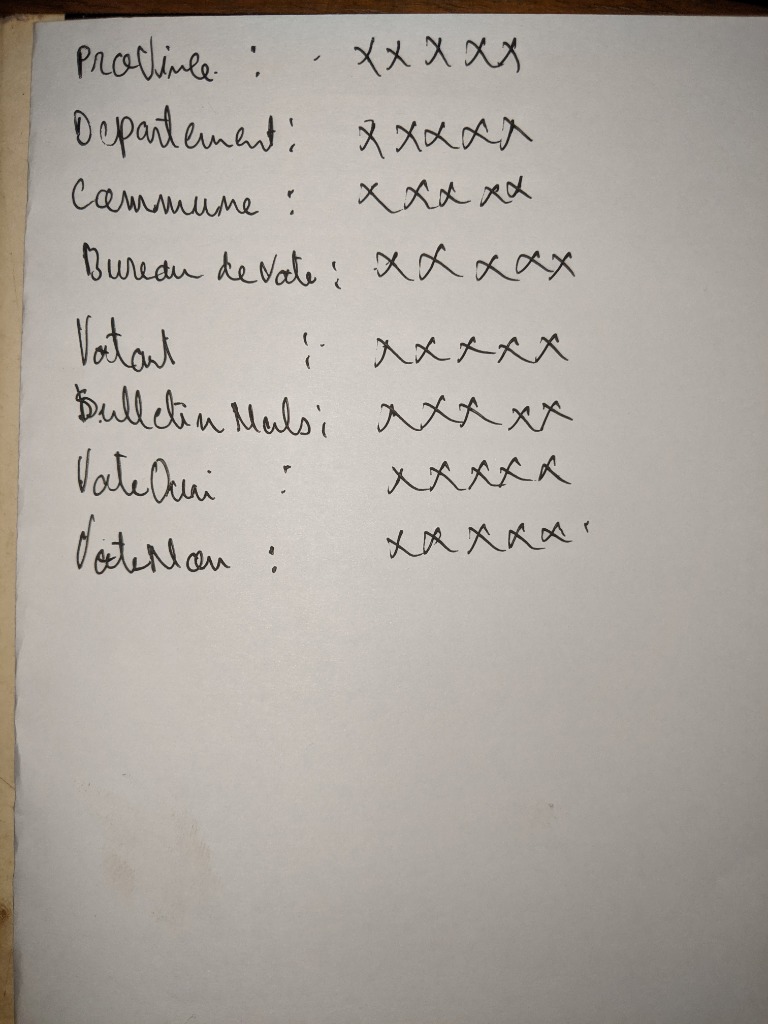 Province : xxxxx
Departement : xxxxx
Commune : xxxxx
Bureau de Vote : xxxxx
Votant : xxxxx
Bulletin Nuls : xxxxx
Vote Oui : xxxxx
Vote Non : xxxxx